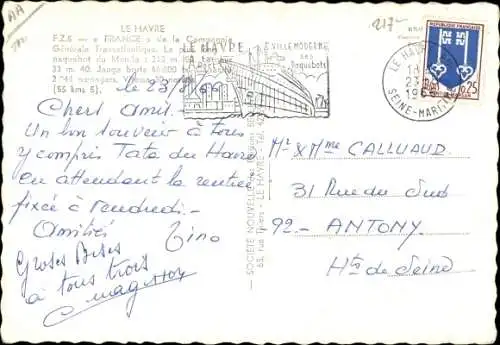 AA
217-
LE HAVRE
F.Z.6 - « FRANCE » de la Compagnie
Générale Transatlantique. Le plus
paquebot du Monde : 315 m
33 m 40. Jauge brute 66.000
2.044 passagers. Vitesse 30
(55 kms 5).
LE HAVRE
VILLE MODERNE
ses
Paquebots
LE HAVRE
23
SEINE-MARITIME
REPUBLIQUE FRANÇAISE
0,25
le 23/8/66
Chers amis.
Un bon souvenir à tous
y compris Tata du Havre
en attendant la rentrée
fixée à vendredi.-
Amitiés Tino
Grosses Bises
à tous trois
SOCIÉTÉ NOUVELLE
65, rue Thiers - LE HAVRE - Tél. 42
Mr & Mme CALLUAUD
31 Rue du Sud
92 - ANTONY
Hts de Seine